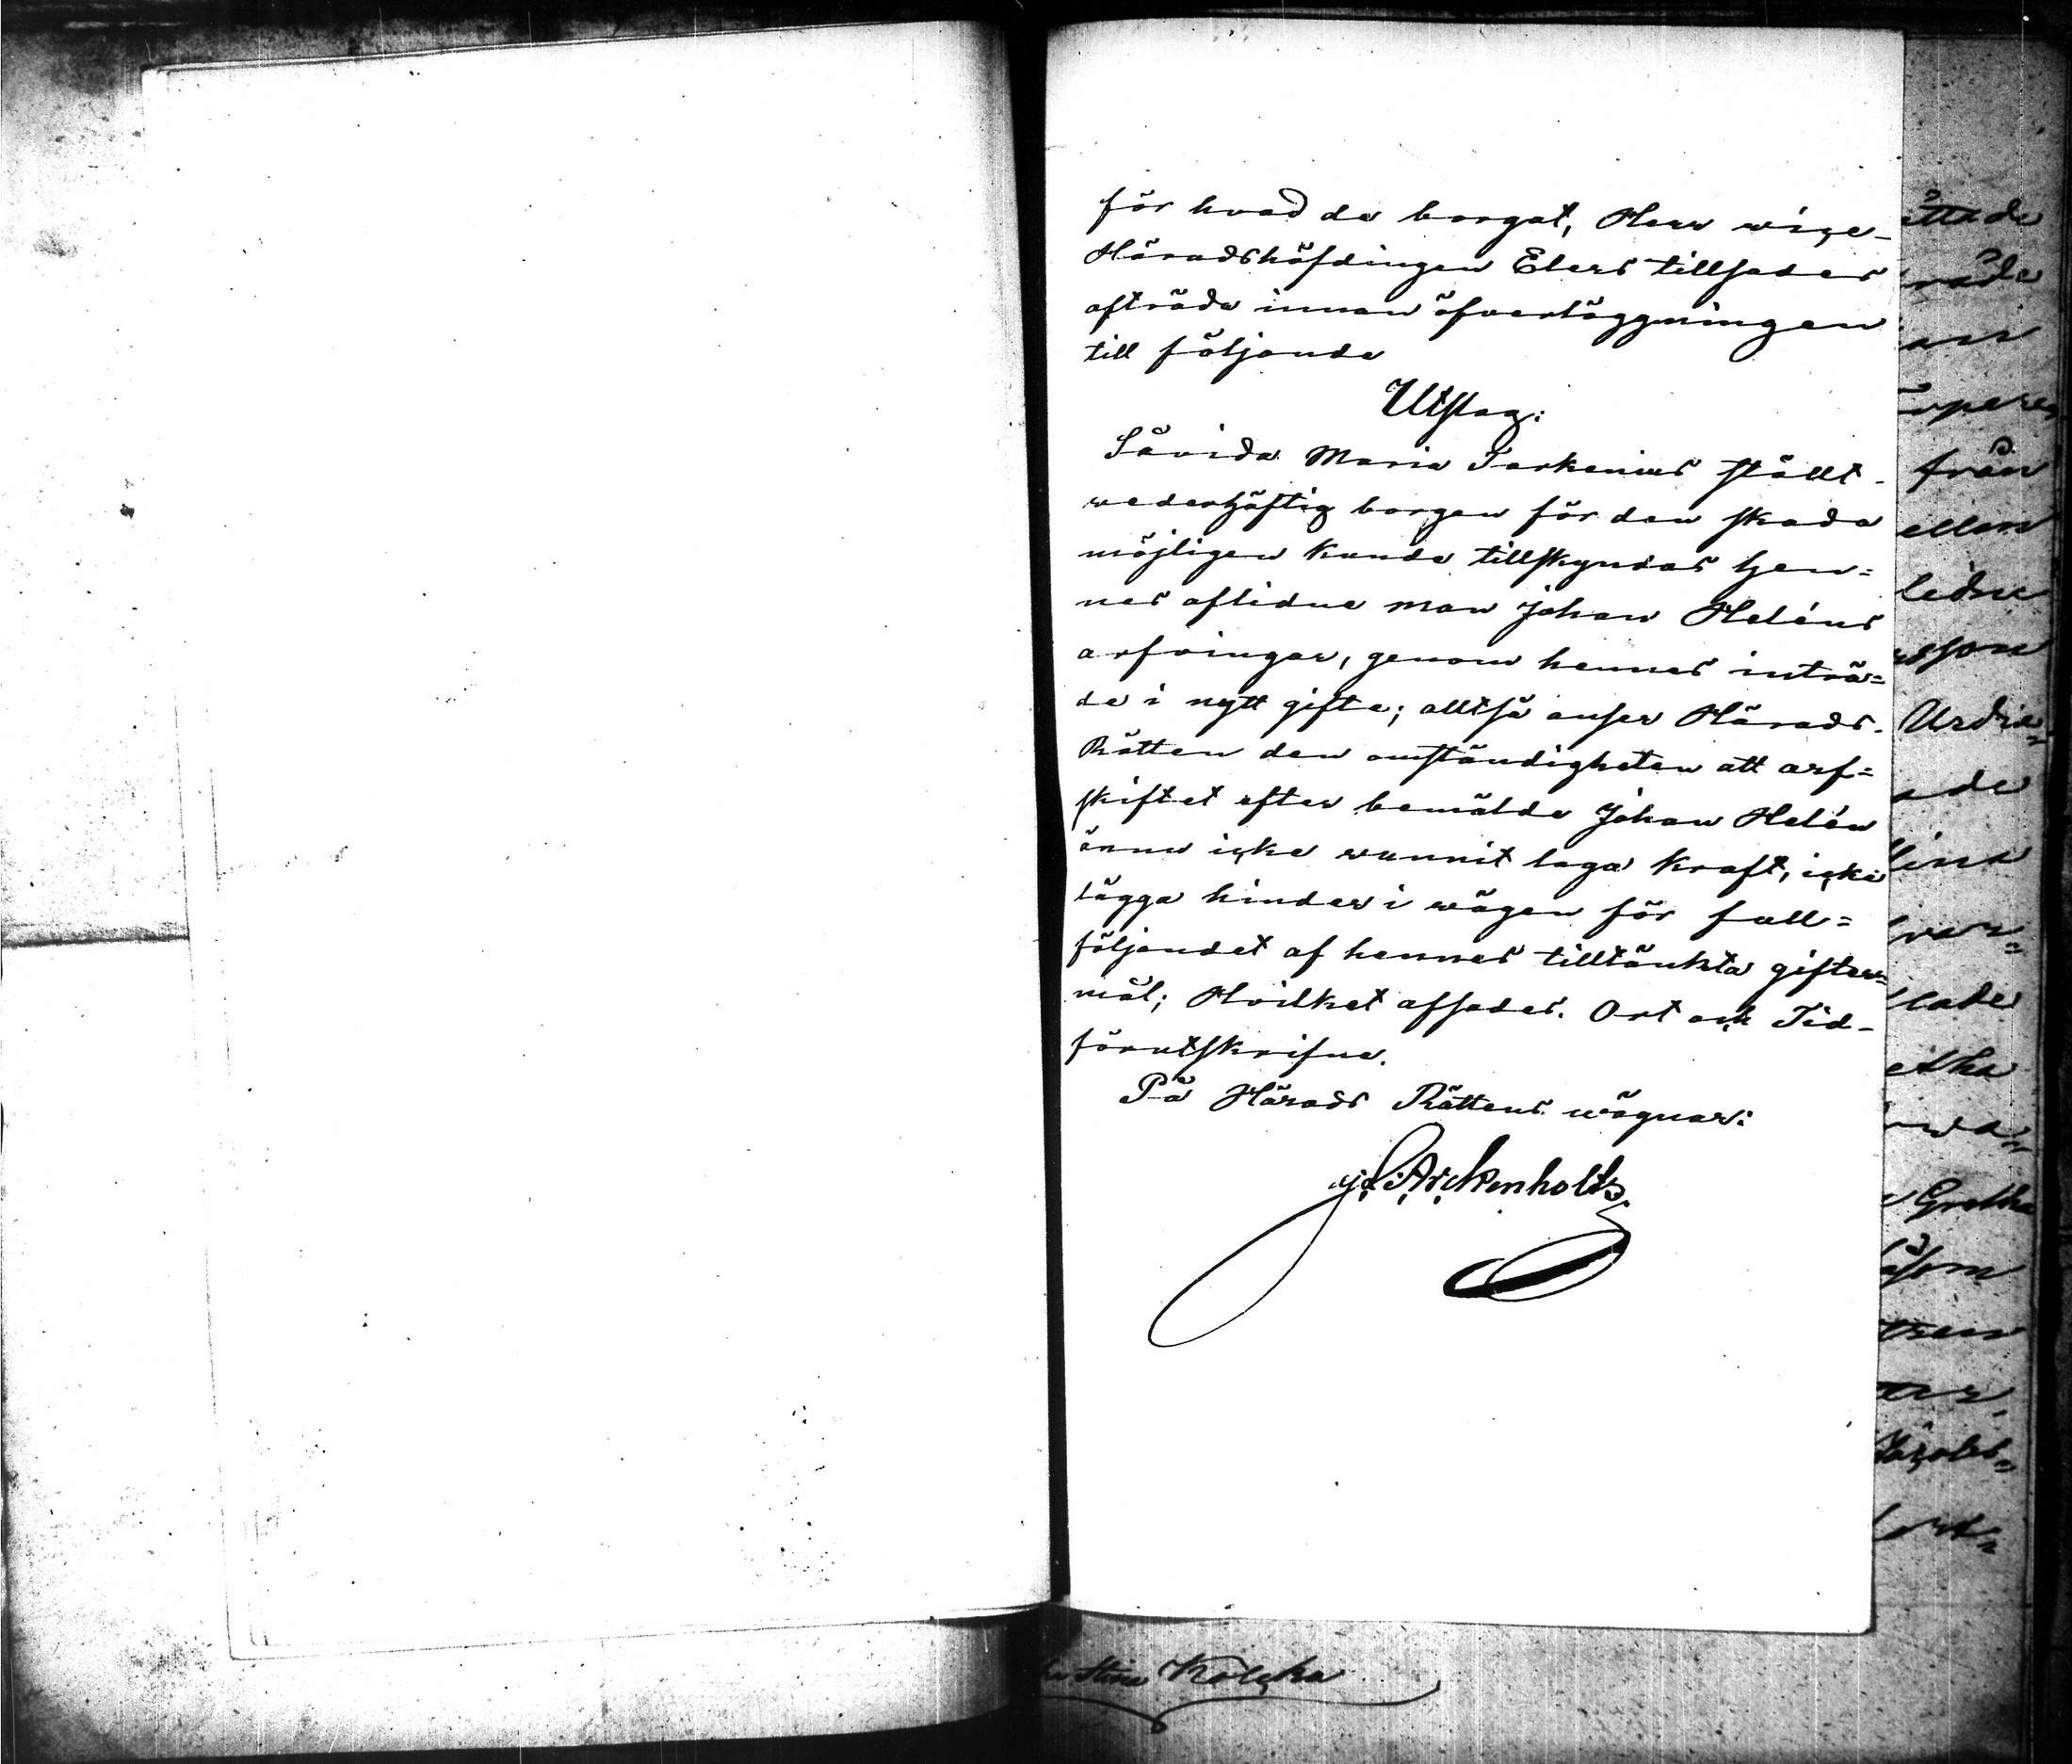 för hvad de borgat, Herr wice-
Häradshöfdingen Elers tillsades
afträda innan öfverläggningen
till följande
Utslag:
Såvida Maria Tarkenius ställt
wederhäftig borgen för den skada
möjligen kunde tillskyndas hen=
nes aflidne man Johan Heléns
arfvingar, genom hennes inträ=
de i nytt gifte; alltså anser Härads-
Rätten den omständigheten att arf=
skiftet efter bemälde Johan Helén
ännu icke wunnit laga kraft, icke
lägga hinder i wägen för full=
följandet af hennes tilltänkta gifter=
mål; Hvilket afsades. Ort och Tid-
förutskrifne.
På Härads Rättens wägnar:
Arckenholtz
åttade
råde
från
ellen
lidne
sson
ade
lade
etha
Gretha
såsom
Stina Kolcka